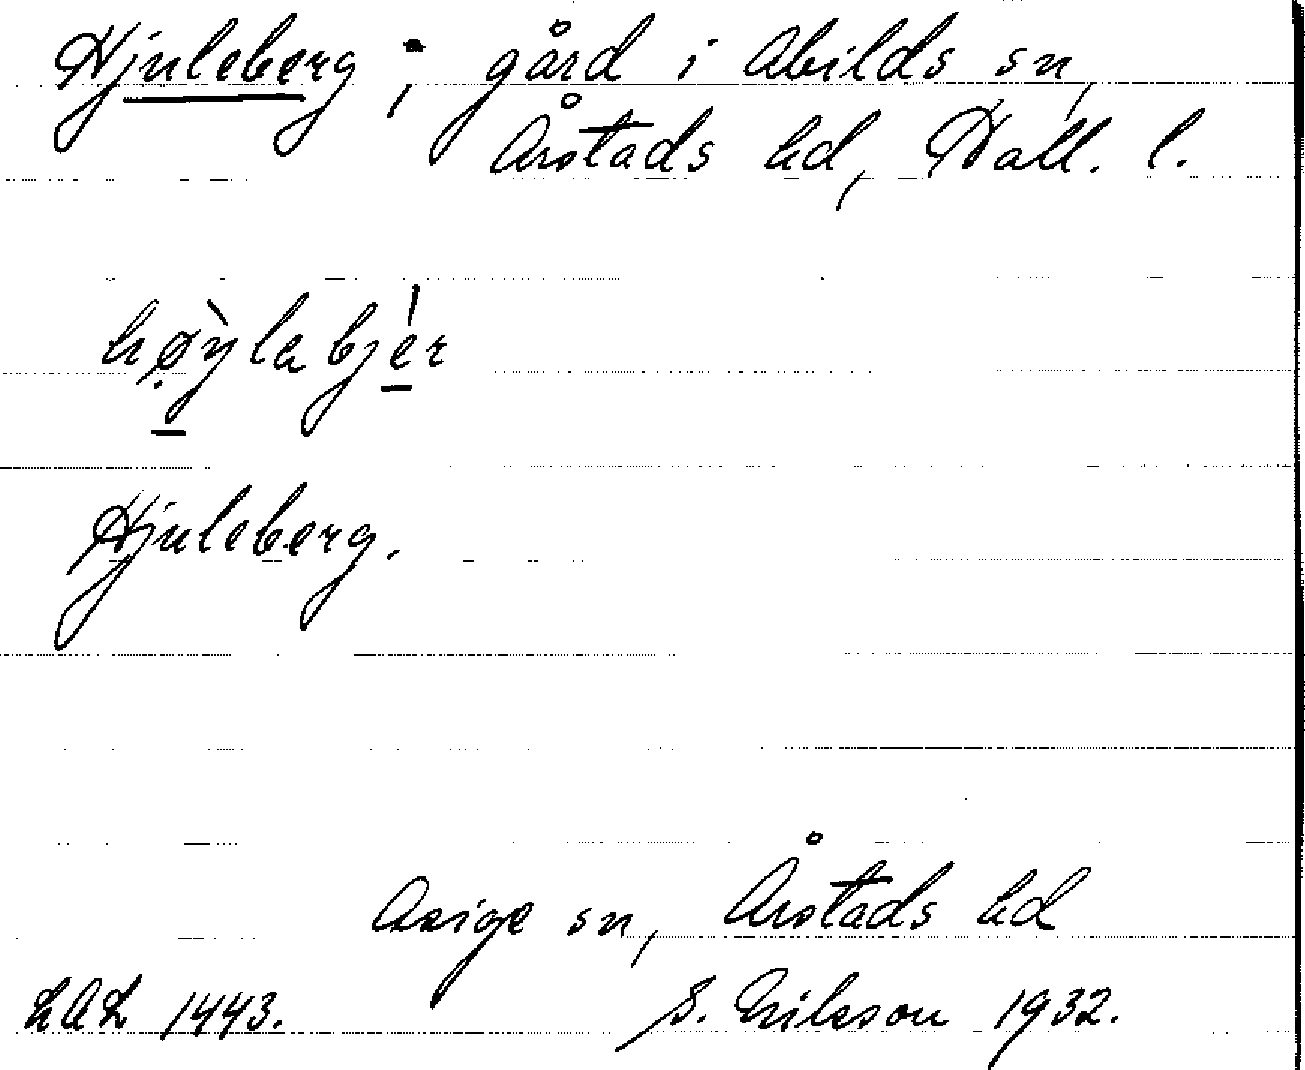 Hjuleberg; gård i Abilds sn,
Årstads hd, Hall. l.
hø̣̀yləbjér
Hjuleberg.
Asige sn, Årstads hd
LAL 1443. S. Eriksson 1932.